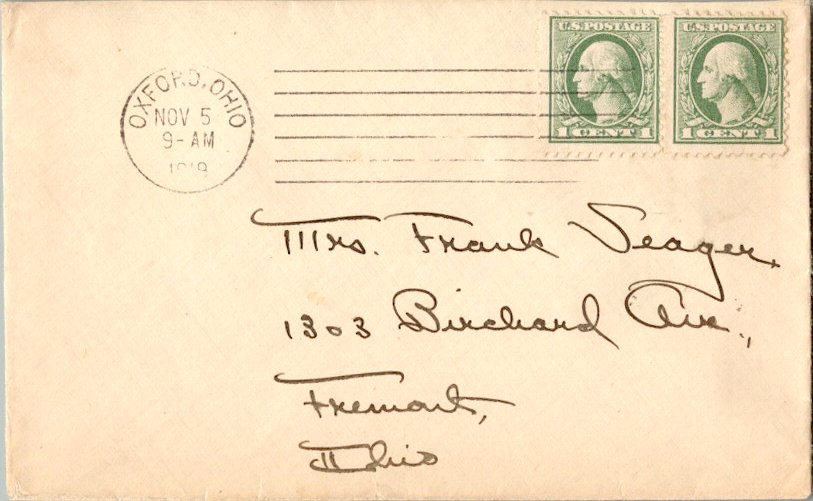 U.S. POSTAGE U.S. POSTAGE
1 CENT 1 1 CENT 1
OXFORD, OHIO
NOV 5
9-AM
1919
Mrs. Frank Seager,
1303 Birchard Ave.,
Fremont,
Ohio